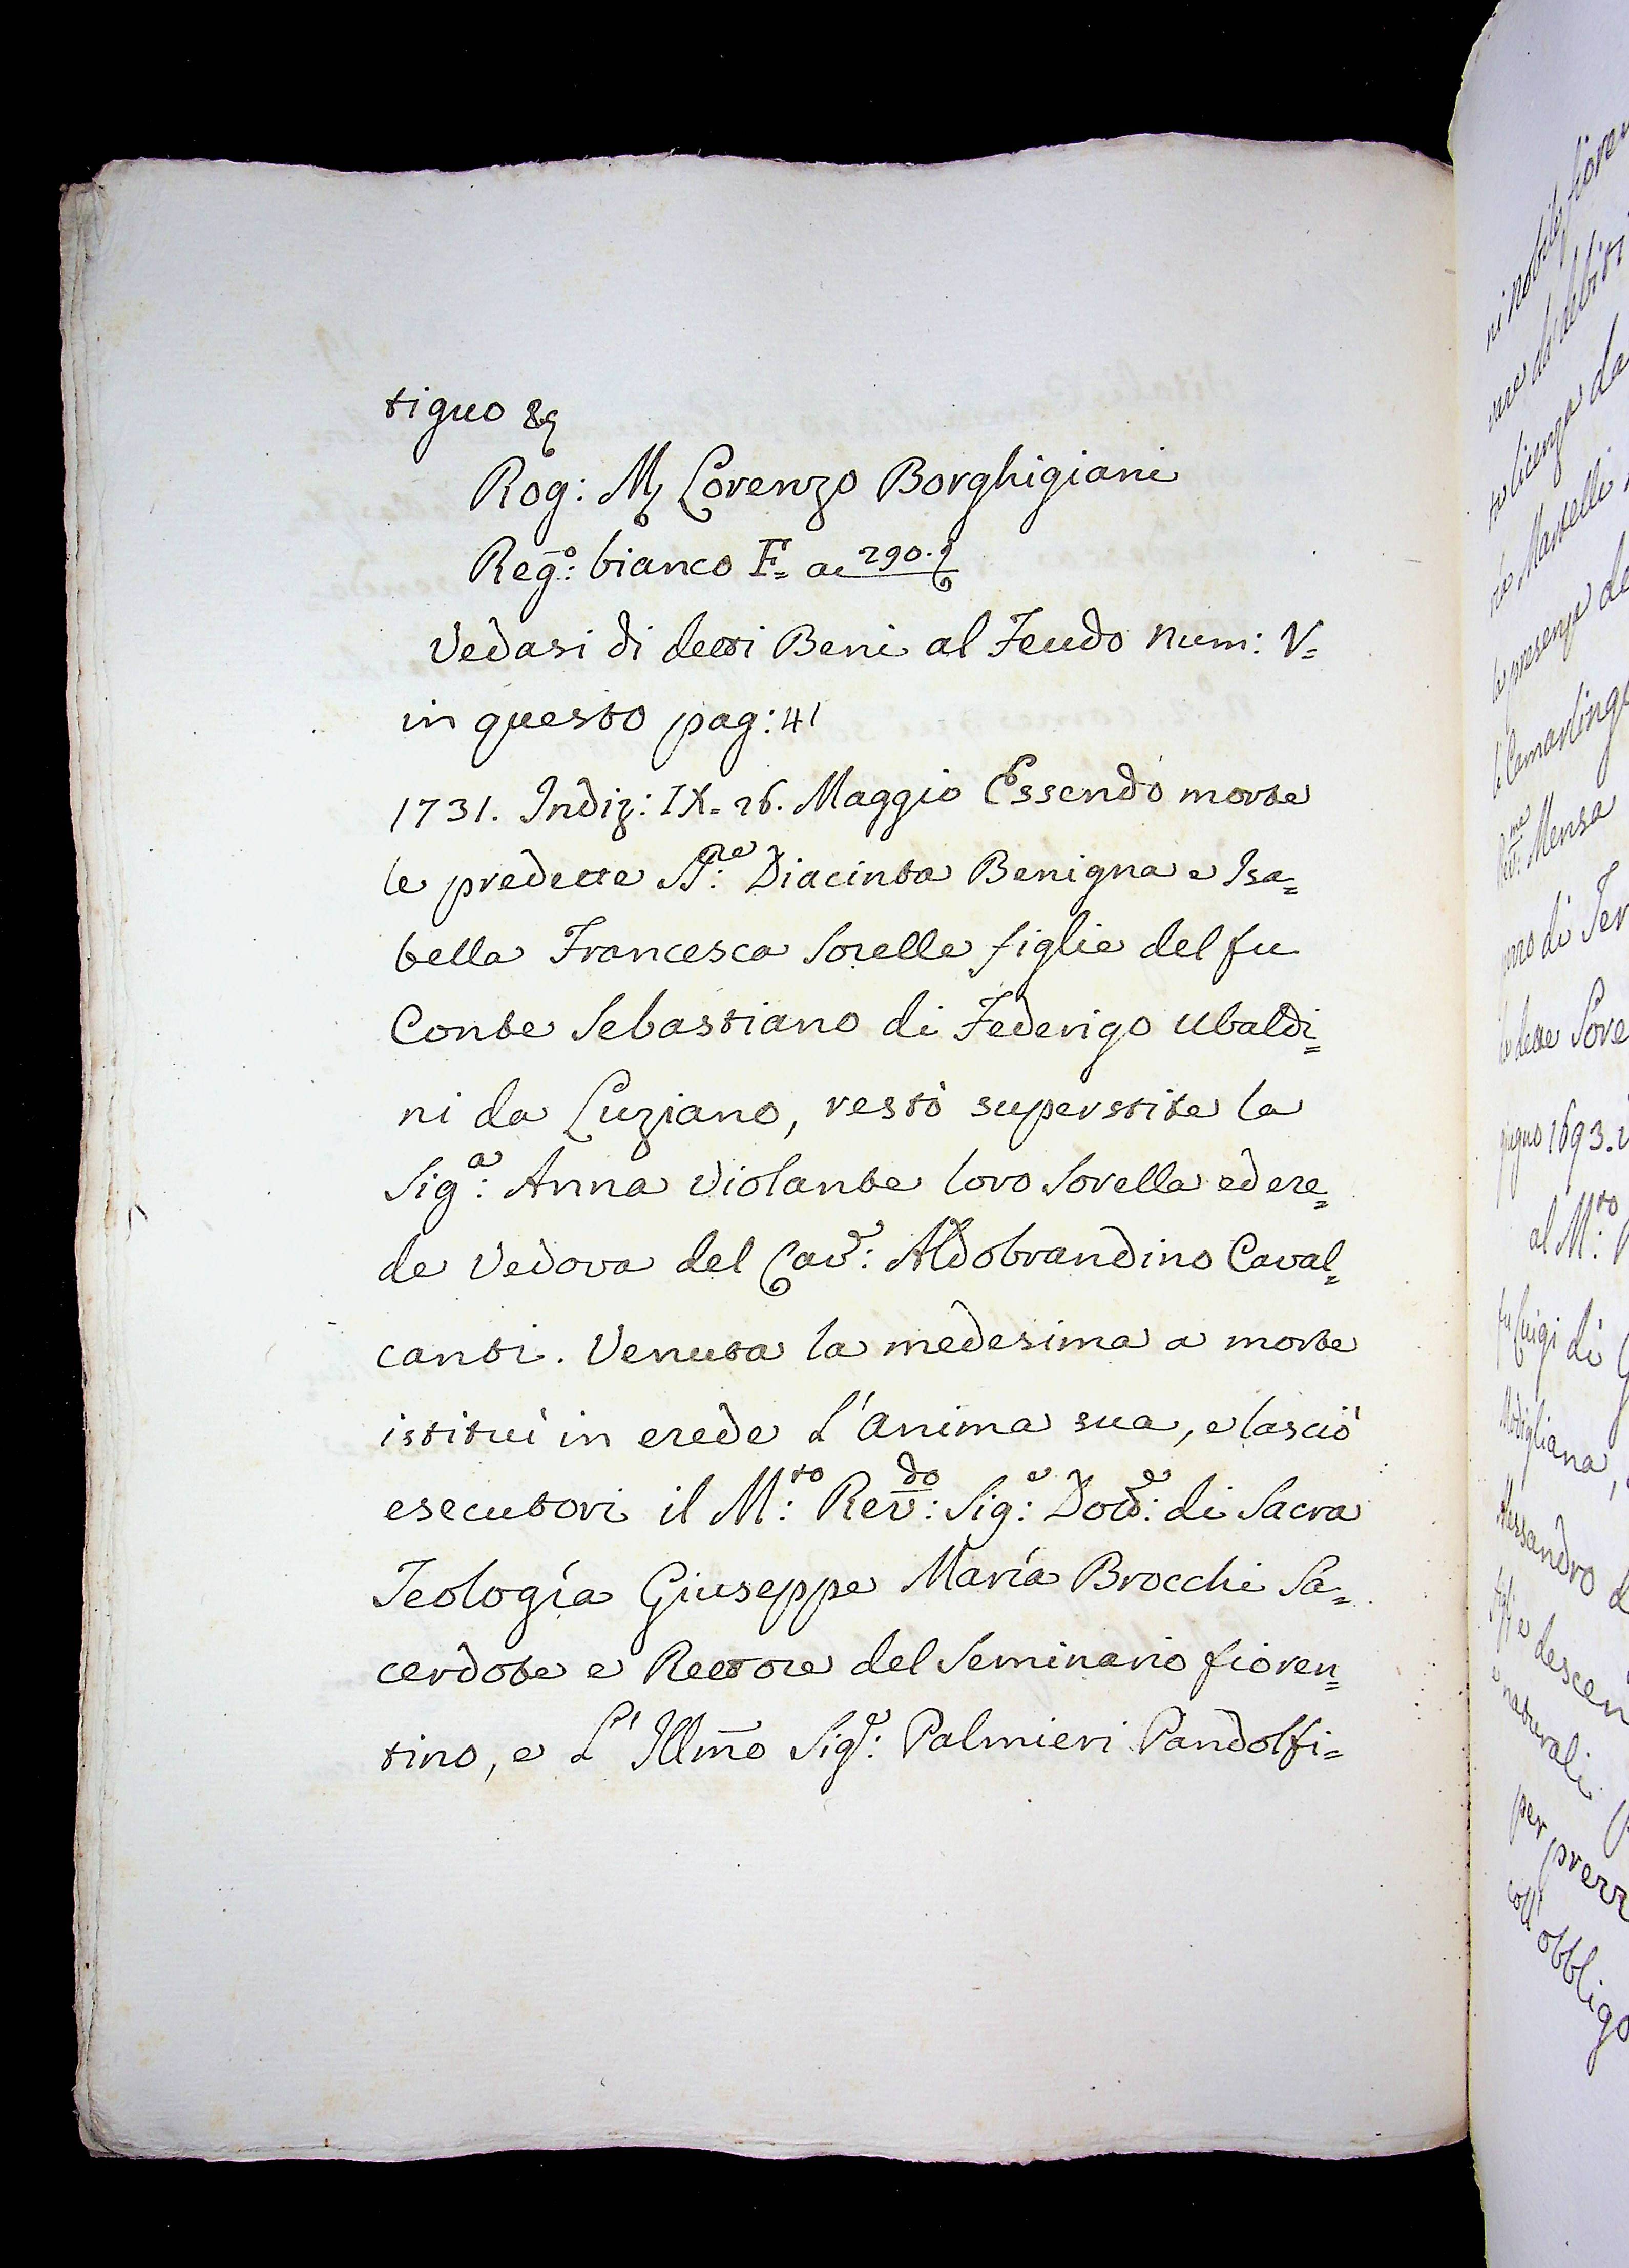 tiguo &c
Rog: M. Lorenzo Borghigiani
Reg.º: bianco F= ac 290.
Vedasi di detti Beni al Feudo Num: V=
in questo pag: 41
1731. Indiz: IX. 26. Maggio Essendo morte
le predette SS.re: Diacinta Benigna e Isa=
bella Francesca Sorelle figlie del fu
Conte Sebastiano di Federigo Ubaldi=
ni da Luziano, restò superstite la
Sig.a: Anna Violante loro Sorella ed ere=
de Vedova del Cav.e: Aldobrandino Caval=
canti. Venuta la medesima a morte
istituì in erede L'anima sua, e lasciò
esecutori il M.to: Rev.do: Sig.e: Dott.e: di Sacra
Teología Giuseppe María Brocchi Sa=
cerdote e Rettore del Seminario fioren=
tino, e L'Illmo Sig.e: Palmieri Pandolfi=
ni Nobile fioren
vare da debiti
licenza da
Martelli
la presenza de
Camarling
Rev.me: Mensa
di Fer
le dette Sore
giugno 1693.
al M.to:
fu Luigi di G
Modigliana,
Alessandro d
figli e descen
e naturali
per prezz
coll'obbligo